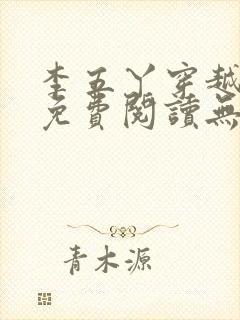 李五丫穿越
免費閱讀無
青木源